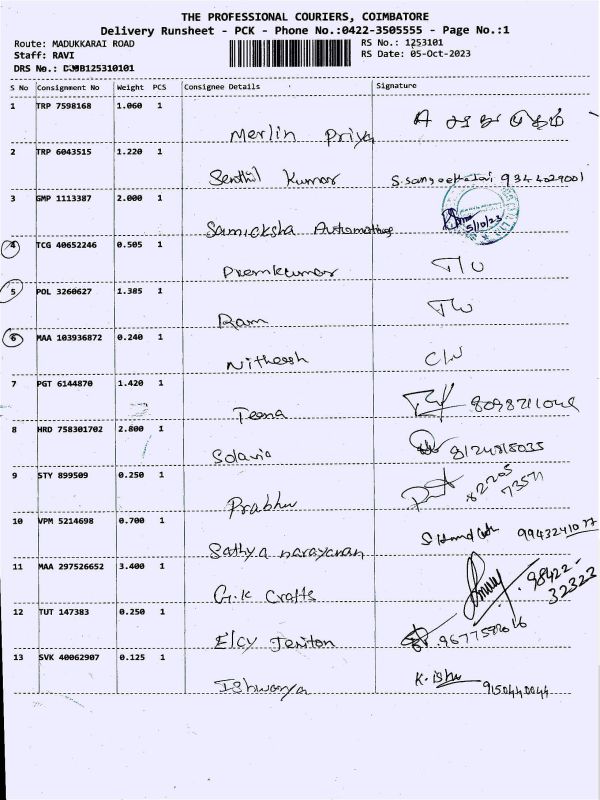 THE PROFESSIONAL COURIERS, COIMBATORE
Delivery Runsheet - PCK - Phone No.:0422-3505555 - Page No.:1
Route: MADUKKARAI ROAD RS No.: 1253101
Staff: RAVI RS Date: 05-Oct-2023
DRS No.:
S No Consignment No Weight PCS Consignee Details Signature
1 TRP 7598168 1.060 1
Merlin Priya
2 TRP 6043515 1.220 1
Senthil Kumar
3 GMP 1113387 2.000 1
Samicksha 5/10/23
4 TCG 40652246 0.505 1
Premkumar
5 POL 3260627 1.385 1
Ram
6 MAA 103936872 0.240 1
Nitheesh
7 PGT 6144870 1.420 1
Teena
8 HRD 758301702 2.800 1
8124815035
9 STY 899509 0.250 1
Prabhu
10 VPM 5214698 0.700 1
Sathya narayanan
11 MAA 297526652 3.400 1
G.K Crafts 98422-32323
12 TUT 147383 0.250 1
Elcy Jeniton
13 SVK 40062907 0.125 1
Ishwarya K. Ishu 9150440044